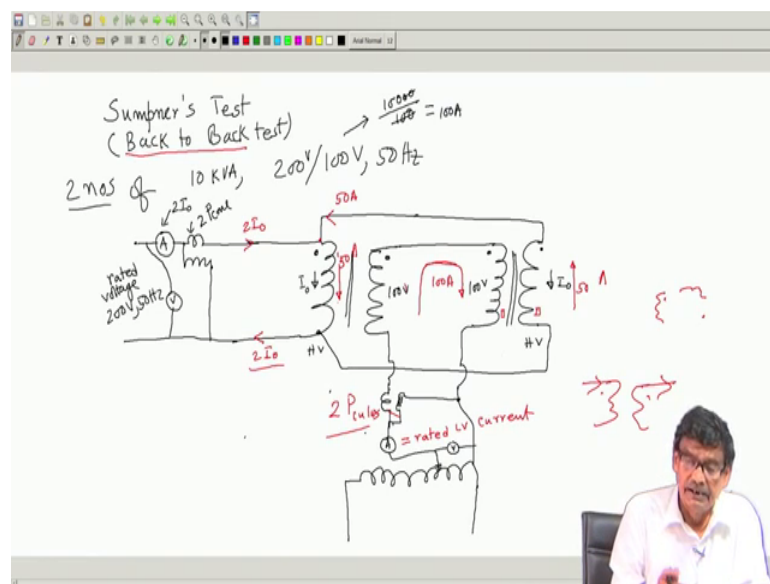 Arial Normal 12
Sumpner's Test
(Back to Back test)
10000/100 = 100A
2 nos of 10 KVA, 200V/100V, 50 Hz
50A
2I0
2Pcore
2I0
A
rated
voltage
200V, 50Hz
V
I0
50A
100V
100A
100V
I0
50 A
HV
HV
2I0
2 Pculoss
A = rated LV current
V